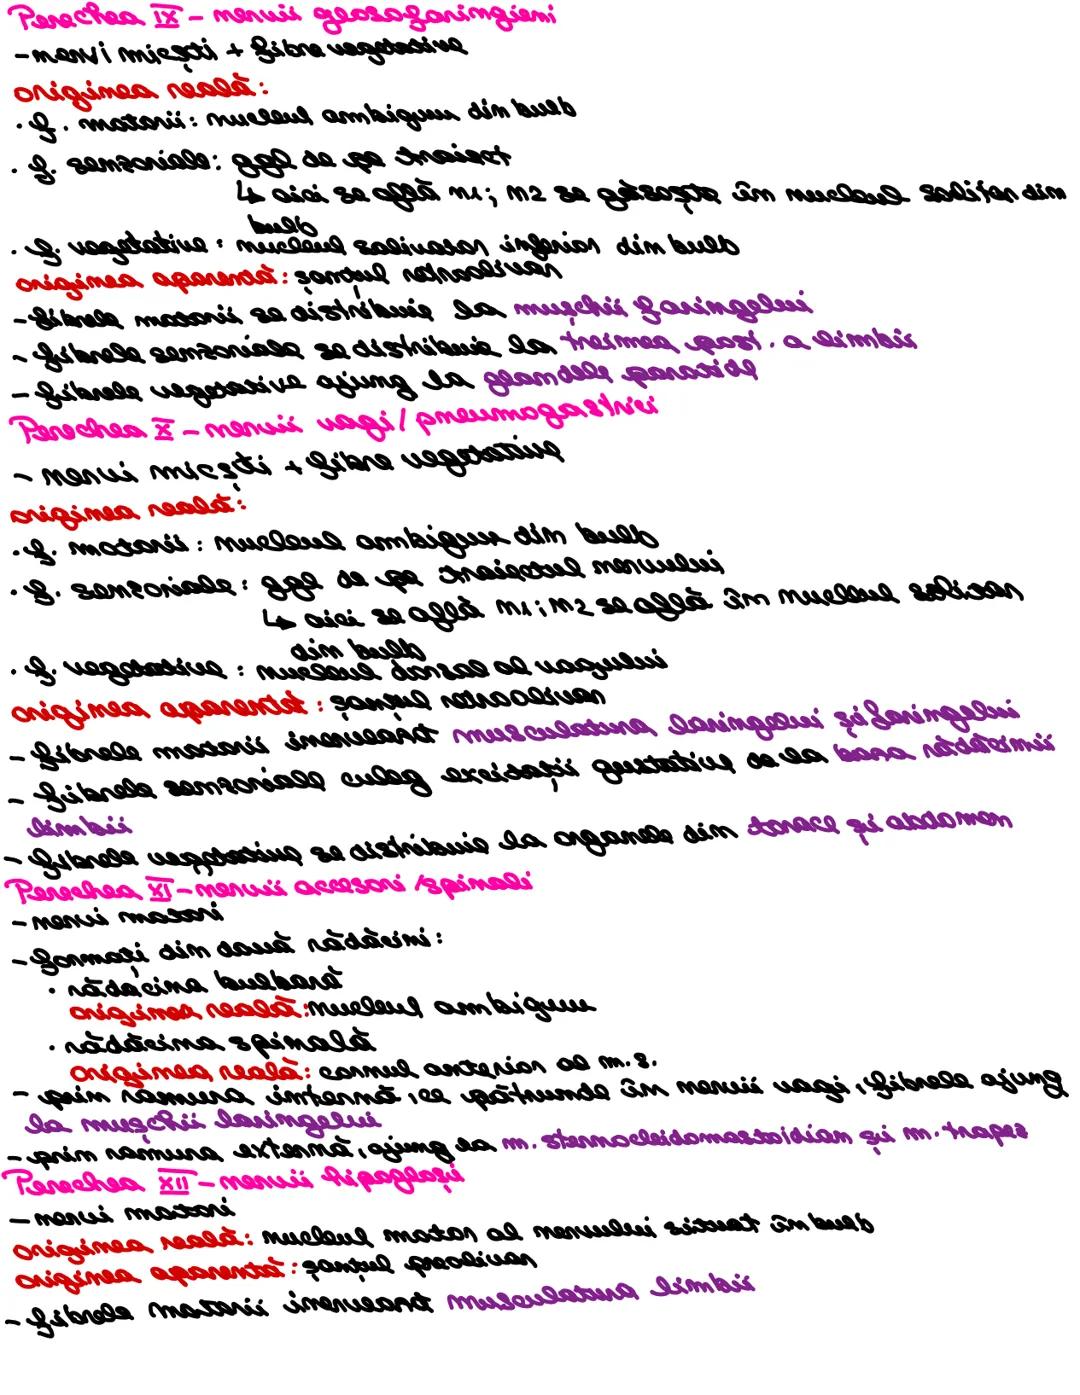 Perechea IX - nervii glosofaringieni
- nervi micști + fibre vegetative
originea reală:
· f. motorii: nucleul ambiguu din bulb
· f. senzoriale: ggl de pe traiect
↳ aici se află n1; n2 se găsește în nucleul solitar din
bulb
· f. vegetative: nucleul salivator inferior din bulb
originea aparentă: șanțul retroolivar
- fibrele motorii se distribuie la mușchii faringelui
- fibrele senzoriale se distribuie la treimea post. a limbii
- fibrele vegetative ajung la glandele parotide
Perechea X - nervii vagi / pneumogastrici
- nervi micști + fibre vegetative
originea reală:
· f. motorii: nucleul ambiguu din bulb
· f. senzoriale: ggl de pe traiectul nervului
↳ aici se află n1; n2 se află în nucleul solitar
din bulb
· f. vegetative: nucleul dorsal al vagului
originea aparentă: șanțul retroolivar
- fibrele motorii inervează musculatura laringelui și faringelui
- fibrele senzoriale culeg excitații gustative de la baza rădăcinii
limbii
- fibrele vegetative se distribuie la organele din torace și abdomen
Perechea XI - nervii accesori /spinali
- nervi motori
- formați din două rădăcini:
· rădăcina bulbară
originea reală: nucleul ambiguu
· rădăcina spinală
originea reală: cornul anterior al m.s.
- prin ramura internă, ce pătrunde în nervii vagi, fibrele ajung
la mușchii laringelui
- prin ramura externă, ajung la m. sternocleidomastoidian și m. trapez
Perechea XII - nervii hipogloși
- nervi motori
originea reală: nucleul motor al nervului situat în bulb
originea aparentă: șanțul preolivar
- fibrele motorii inervează musculatura limbii